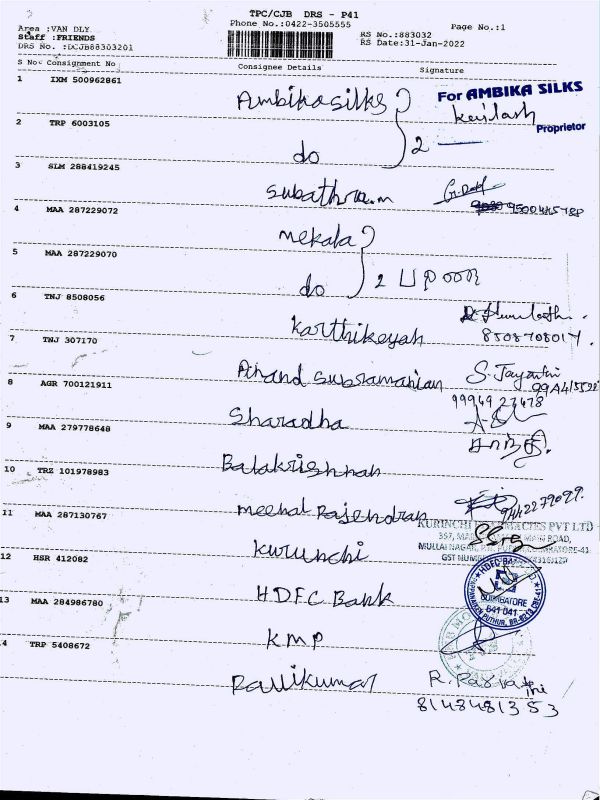 TPC/CJB DRS - P41
Area :VAN DLY Phone No.:0422-3505555 Page No.:1
Staff :FRIENDS RS No.:883032
DRS No. :DCJB88303201 RS Date:31-Jan-2022
S No Consignment No Consignee Details Signature
1 IXM 500962861 Ambika silks For AMBIKA SILKS
Kailash
Proprietor
2 TRP 6003105 do 2
3 SLM 288419245 Subathra.m
4 MAA 287229072 mekala
5 MAA 287229070 do 2
6 TNJ 8508056 Karthikeyah
8508708014.
7 TNJ 307170 Anand Subramanian S. Jayanthi
8 AGR 700121911 Sharadha 9994927478
9 MAA 279778648 Balakrishnan
10 TRZ 101978983 meenal Rajendran 9442279099.
11 MAA 287130767 Kurunchi KURINCHI PHARMACIES PVT LTD
MAIN ROAD,
MULLAI NAGAR,
12 HSR 412082 HDFC Bank HDFC BANK
COIMBATORE
641 041
13 MAA 284986780 KMP
4 TRP 5408672 Ravikumar R. Rasvathi
8148481353